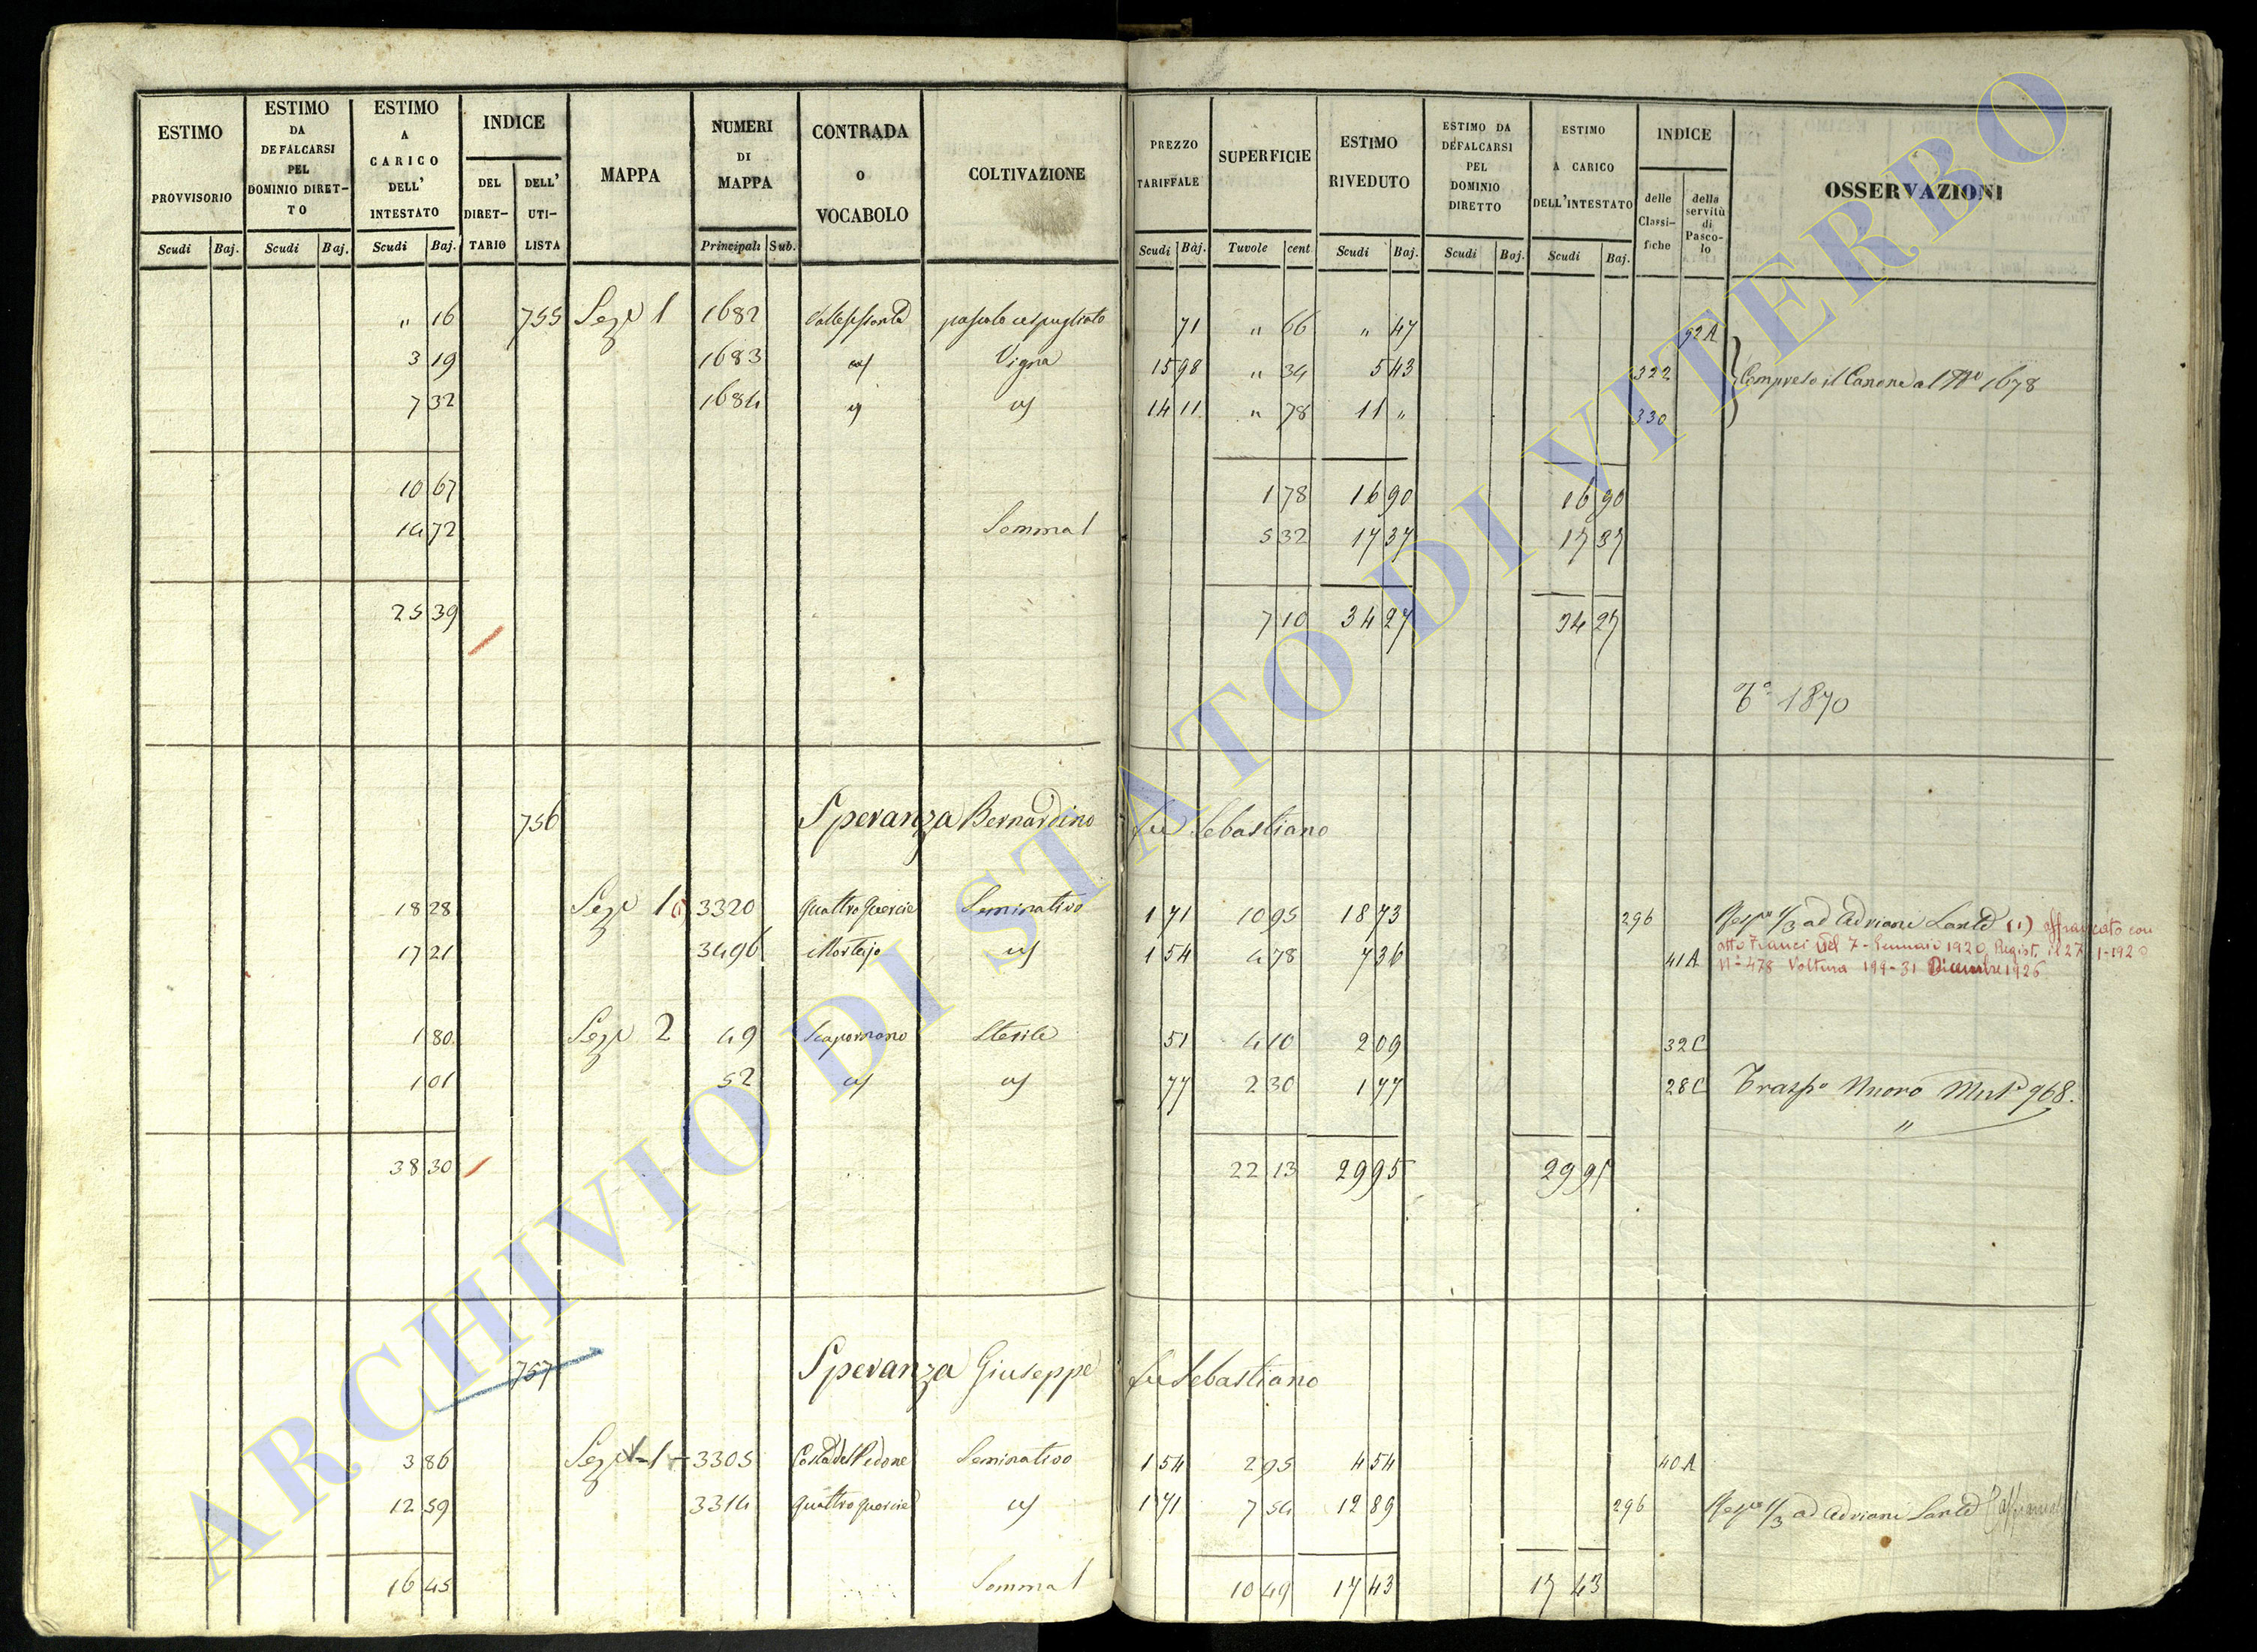 ESTIMO PROVVISORIO Scudi Baj.
ESTIMO DA DEFALCARSI PEL DOMINIO DIRETTO Scudi Baj.
ESTIMO A CARICO DELL' INTESTATO Scudi Baj.
INDICE DEL DIRET-TARIO DELL' UTI-LISTA
MAPPA
NUMERI DI MAPPA Principali Sub.
CONTRADA O VOCABOLO
COLTIVAZIONE
PREZZO TARIFFALE Scudi Baj.
SUPERFICIE Tavole cent
ESTIMO RIVEDUTO Scudi Baj.
ESTIMO DA DEFALCARSI PEL DOMINIO DIRETTO Scudi Baj.
ESTIMO A CARICO DELL'INTESTATO Scudi Baj.
INDICE delle Classi-fiche della servitù di Pasco-lo
OSSERVAZIONI
" 16 755 Sezne 1 1682 pascolo cespugliato 71 " 66 " 47 52A
3 19 1683 Vigna 15 98 " 34 5 43 322 Compreso il Canone al No 1678
7 32 1684 14 11 " 78 11 " 330
10 67 1 78 16 90 16 90
14 72 Somma 1 5 32 17 37 17 37
25 39 7 10 34 27 34 27
1870
756 Speranza Bernardino fu Sebastiano
18 28 Sezne 1 3320 Quattro Quercie Seminativo 1 71 10 95 18 73 296 1/3 ad Adriani Santa (1) affrancato con
atto Franci del 7-Gennaio 1920 Regist. il 27-1-1920
17 21 3496 Mortajo 1 54 4 78 7 36 41A N° 478 Voltura 199-31 Dicembre 1926
1 80 Sezne 2 49 Sterile 51 4 10 2 09 32C
1 01 52 77 2 30 1 77 28C Traspo Nuovo 968.
"
38 30 22 13 29 95 29 95
757 Speranza Giuseppe fu Sebastiano
3 86 Sezne 1 3305 Costa del Pedone Seminativo 1 54 2 95 4 54 40A
12 59 3314 Quattro Quercie 1 71 7 54 12 89 296 1/3 ad Adriani Santa
16 45 Somma 1 10 49 17 43 17 43
ARCHIVIO DI STATO DI VITERBO